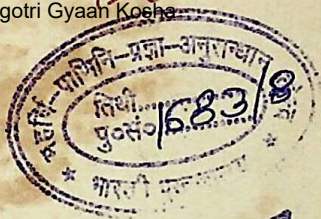 gotri Gyaan Kosha
महर्षि-पाणिनि-प्रज्ञा-अनुसन्धान
तिथी.....
पु०सं० 1683/8
* भारती पुस्तकालय *